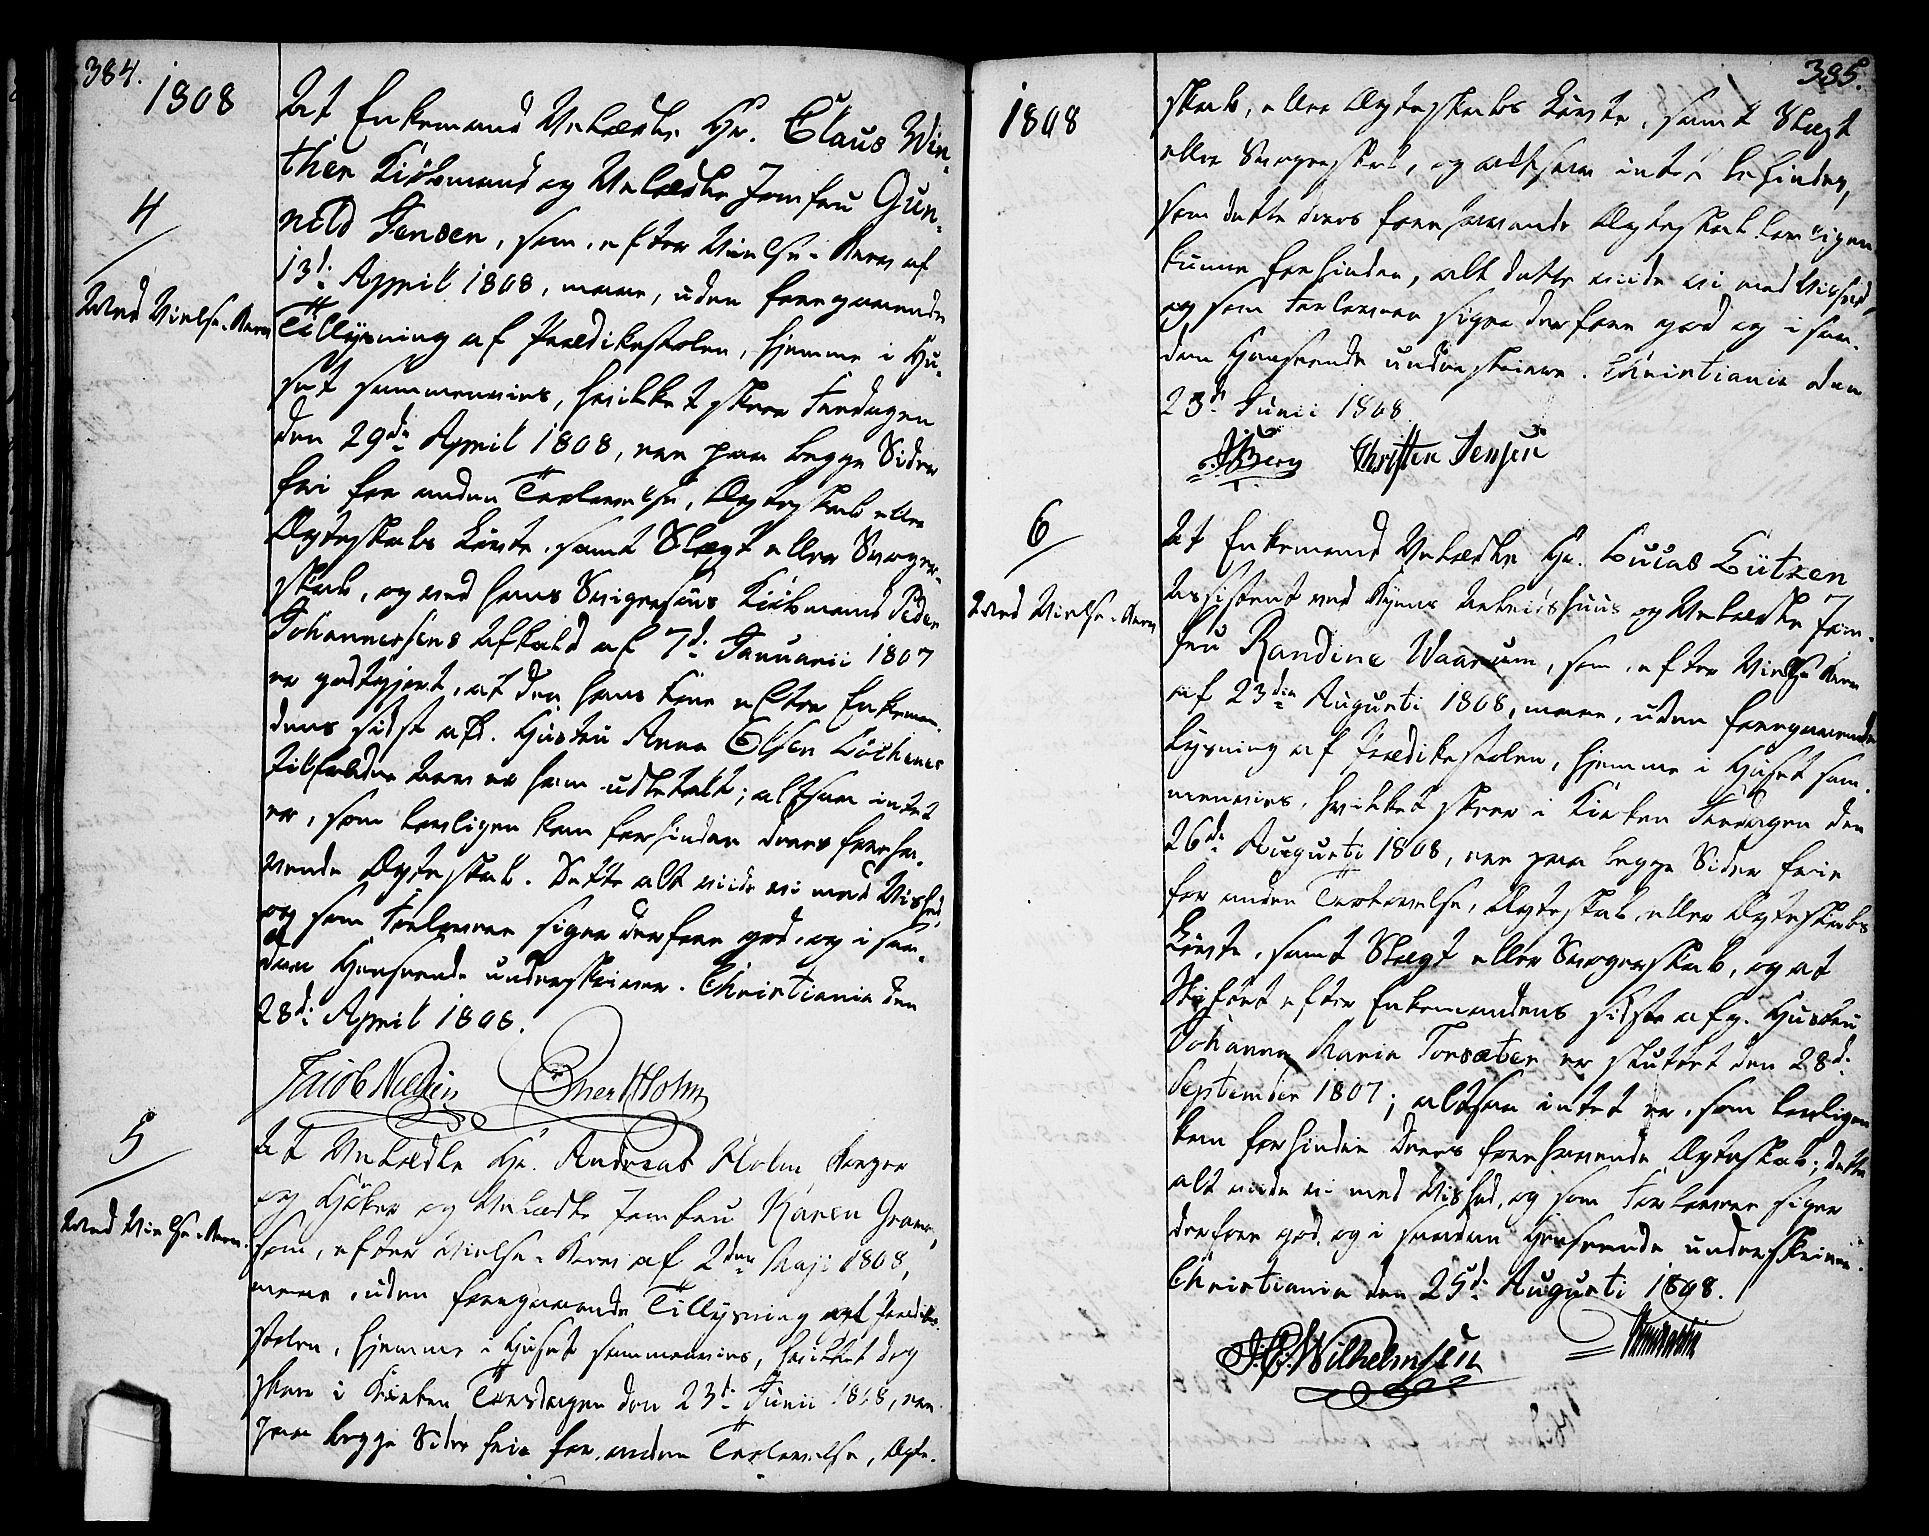 384.
1808
4
Med Vielse-Brev
At Enkemand Velædle Hr. Claus Win-
ther Kiöbmand og Velædle Jomfru Gun-
nild Jensen, som, efter Vielse-Brev af
13de April 1808, maae, uden foregaaende
Tillysning af Prædikestolen, hjemme i Hu-
set sammenvies, hvilket skeer Fredagen
den 29de April 1808, ere paa begge Sider
fri for anden Trolovelse, Ægteskab eller
Ægteskabs Løvte, samt Slægt eller Svoger-
skab, og ved hans Svigersöns Kiöbmand Peder
Johannessens Afkald af 7de Januarii 1807
er godtgjort, at den hans Kone efter Enkeman-
dens sidst afd. Hustru Anne Olsen
tilfaldne Arv er ham udbetalt; altsaa intet
er, som lovligen kan forhindre deres foreha-
vende Ægteskab. Dette alt vide vi med Vished,
og som Forlovere sige derfore god, og i saa-
dan Henseende underskriver. Christiania den
28de April 1808.
Jacob Nielsen Ener Holm
5
Med Vielse-Brev.
At Velædle Hr. Andreas Holm, Borger
og Høker og Velædle Jomfru Karen Graver,
som, efter Vielse-Brev af 2den Maji 1808,
maae, uden foregaaende Tillysning af Prædike-
stolen, hjemme i Huset sammenvies, hvilket dog
skeer i Kirken Torsdagen den 23de Junii 1808, ere
paa begge Sider frie for anden Trolovelse, Ægte-
385.
1808
skab, eller Ægteskabs Løvte, samt Slægt
eller Svogerskab, og altsaa intet befindes,
som dette deres forehavende Ægteskab lovligen
kunne forhindre, alt dette vide vi med Vished,
og som Forlovere siger derfore god og i saa-
dan Henseende underskrive. Christiania den
23de Junii 1808
Berg Christen Jensen
6
Med Vielse-Brev
At Enkemand Velædle Hr. Lucas Lützen
Assistent ved Byens Arbeidshuus og Velædle Jom-
fru Randine Waarum, som, efter Vielse-Brev
af 23de Augusti 1808, maae, uden foregaaende
Lysning af Prædikestolen, hjemme i Huset sam-
menvies, hvilket skeer i Kirken Fredagen den
26de Augusti 1808, ere paa begge Sider frie
for anden Trolovelse, Ægteskab eller Ægteskabs
Løvte, samt Slægt eller Svogerskab, og at
Skiftet efter Enkemandens sidste afg. Hustru
Johanna Maria Torsæter er sluttet den 28de
September 1807; altsaa intet er, som lovligen
kan forhindre deres forehavende Ægteskab; dette
alt vide vi med Vished, og som Forlovere siger
derfore god, og i saadan Henseende underskrive.
Christiania den 25de Augusti 1808.
Wilhelmsen